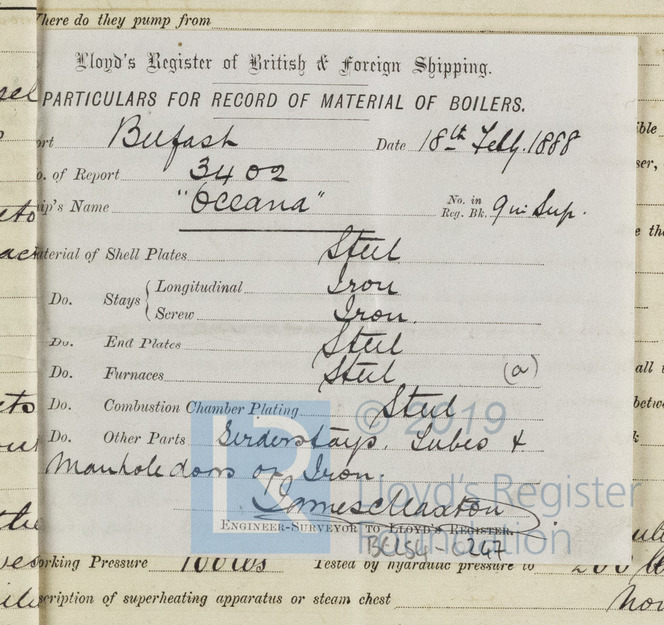 Where do they pump from
Lloyd's Register of British & Foreign Shipping.
PARTICULARS FOR RECORD OF MATERIAL OF BOILERS.
ort Belfast Date 18th Feby. 1888
o. of Report 3402
ip's Name "Oceana" No. in Reg. Bk. 9 in Sup.
aterial of Shell Plates Steel
Do. Stays { Longitudinal Iron
Screw Iron.
Do. End Plates Steel
Do. Furnaces Steel (a)
Do. Combustion Chamber Plating Steel
© 2019
Do. Other Parts Girderstays, Tubes &
Manhole doors of Iron.
James Maxton
Lloyd's Register
Foundation
ENGINEER-SURVEYOR TO LLOYD'S REGISTER.
orking Pressure 100 lbs Tested by hydraulic pressure to 200 lb
scription of superheating apparatus or steam chest